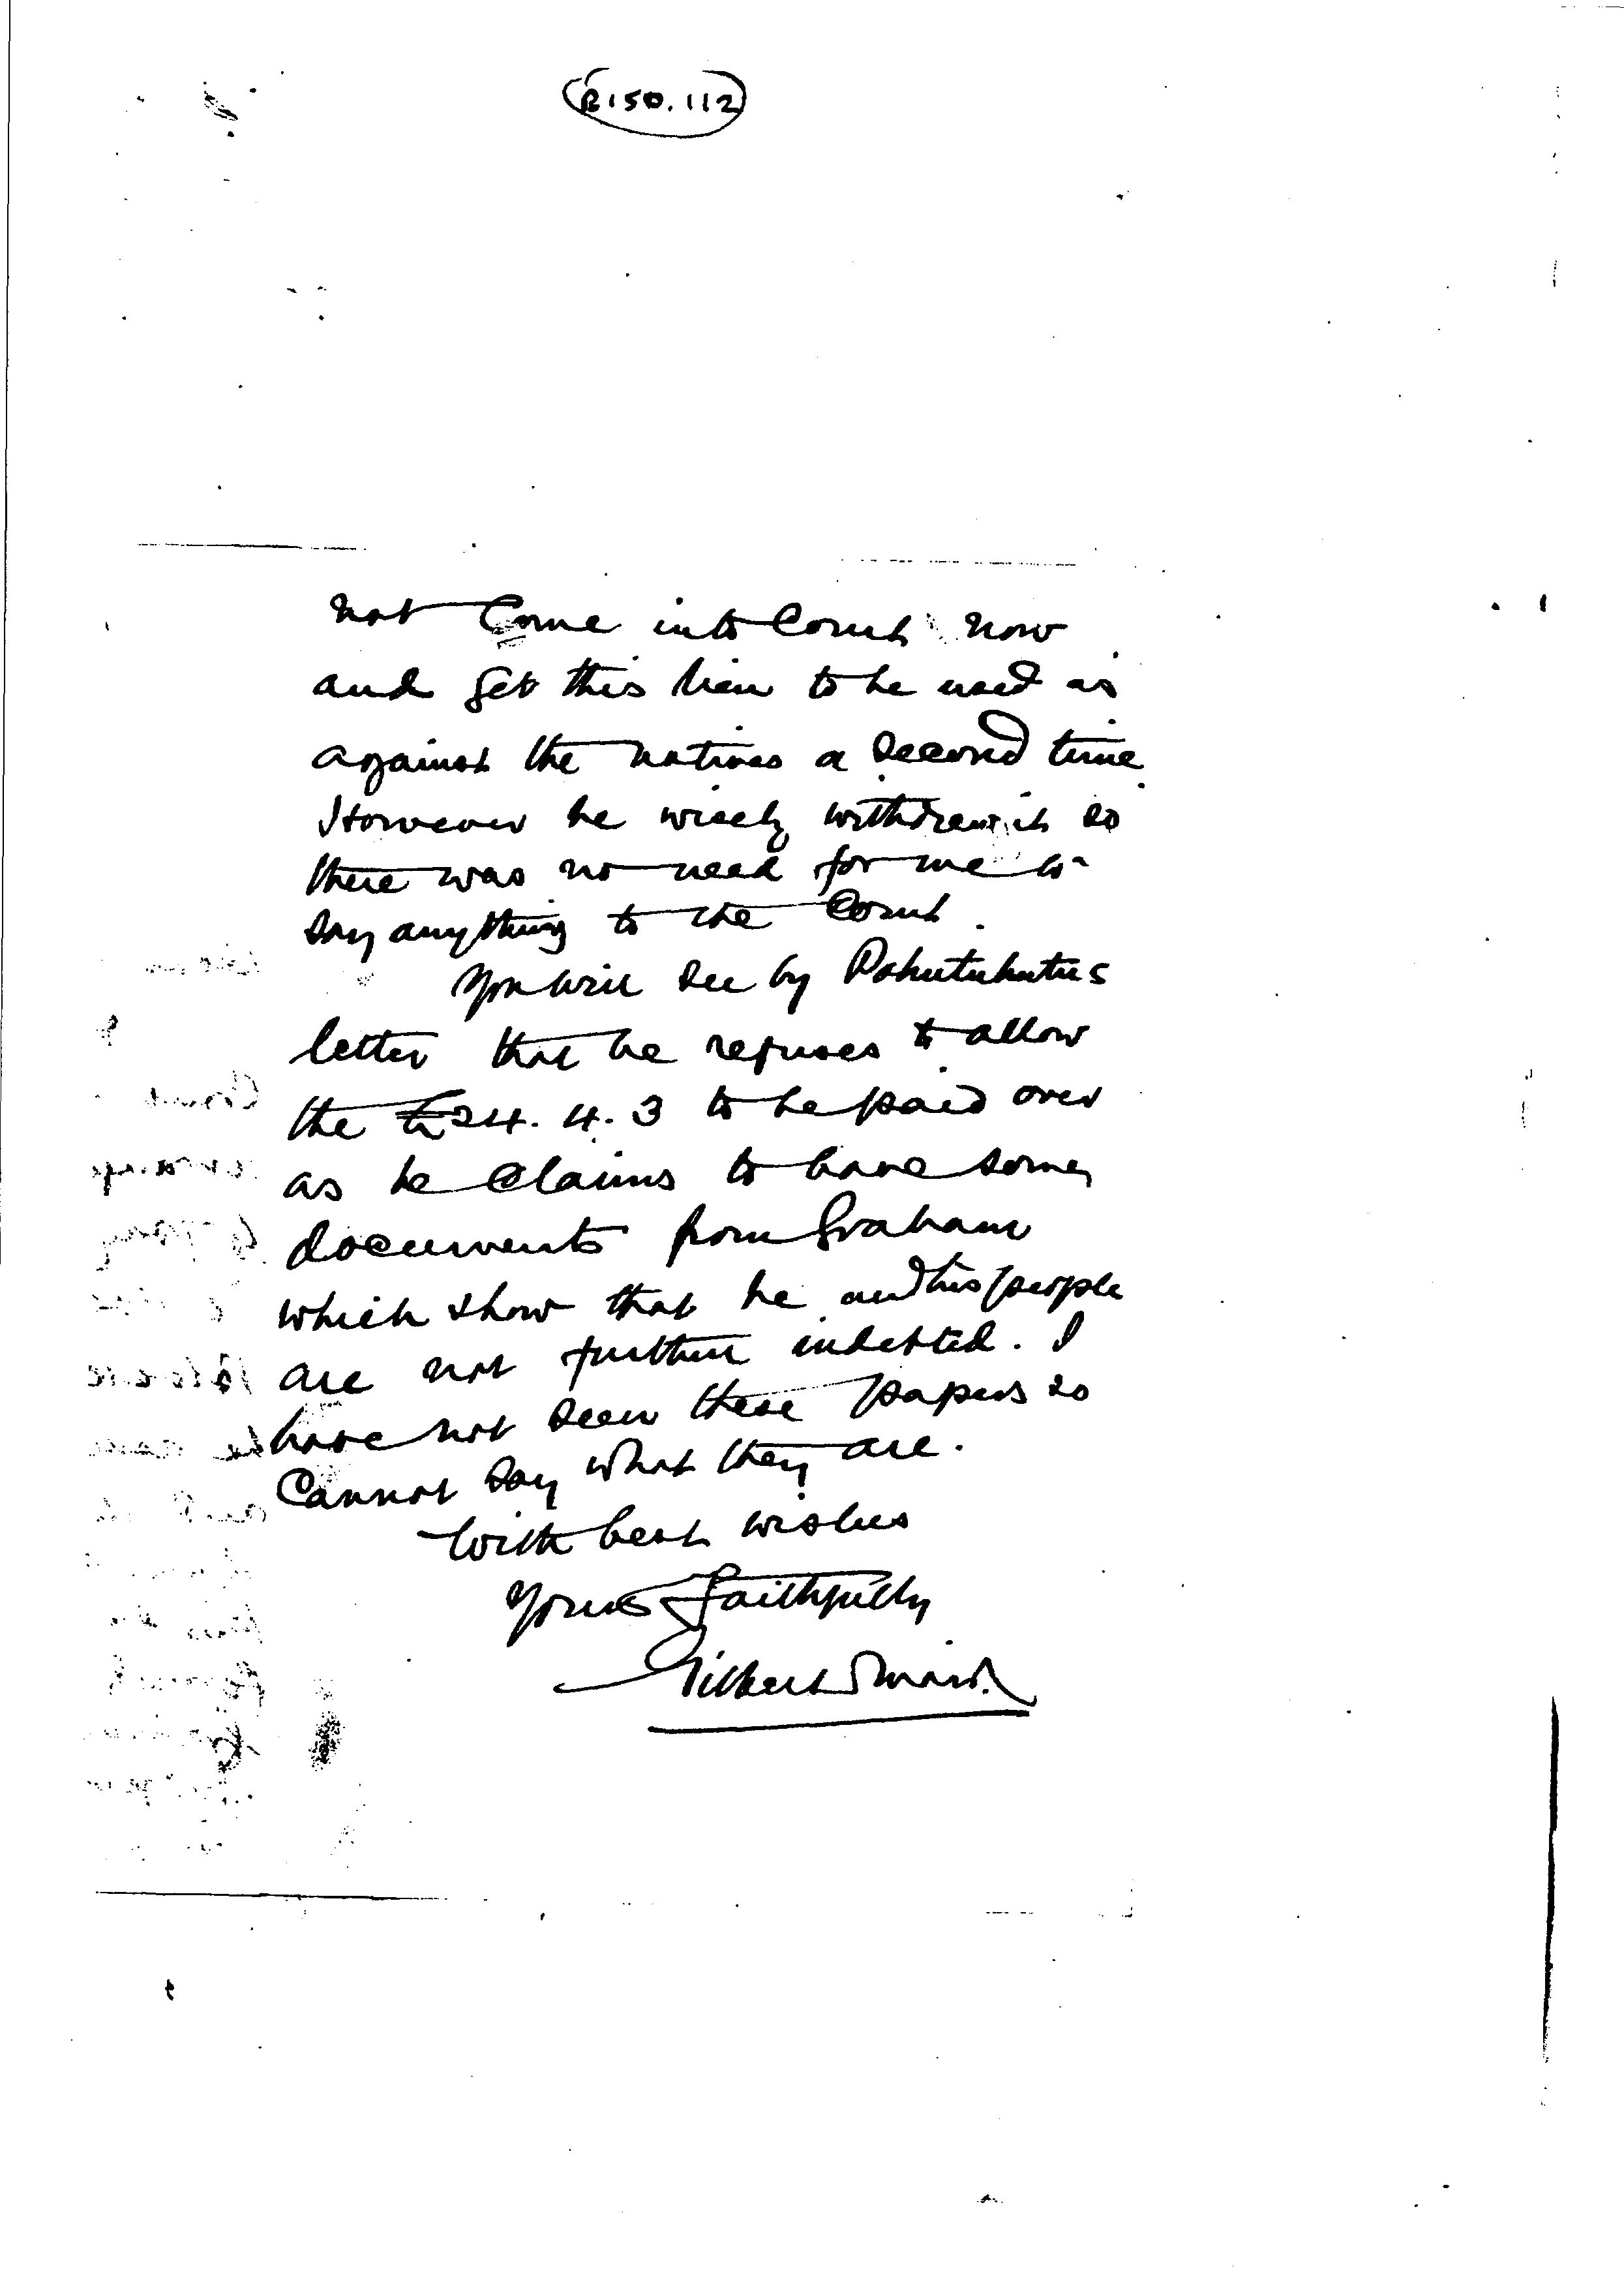 R150.112
not Come into Court now
and get this lien to be used as
against the natives a second time
However he wisely withdrew it so
there was no need for me to
say anything to the Court.
You will see by Pohutuhutus
letter that he refuses to allow
the £24.4.3 to be paid over
as he Claims to have some
documents from Graham
which show that he and his people
are not further indebted. I
have not seen these papers so
Cannot say what they are.
With best wishes
Yours Faithfully
Gilbert Mair.